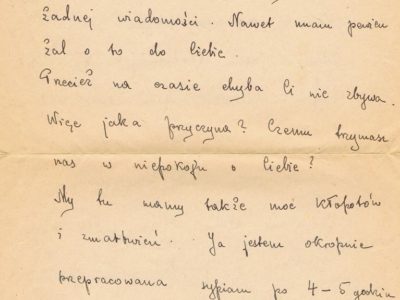 żadnej wiadomości. Nawet mam pewien
żal o to do Ciebie.
Przecież na czasie chyba Ci nie zbywa.
Więc jaka przyczyna? Czemu trzymasz
nas w niepokoju o Ciebie?
My tu mamy także moc kłopotów
i zmartwień. Ja jestem okropnie
przepracowana sypiam po 4-5 godzin